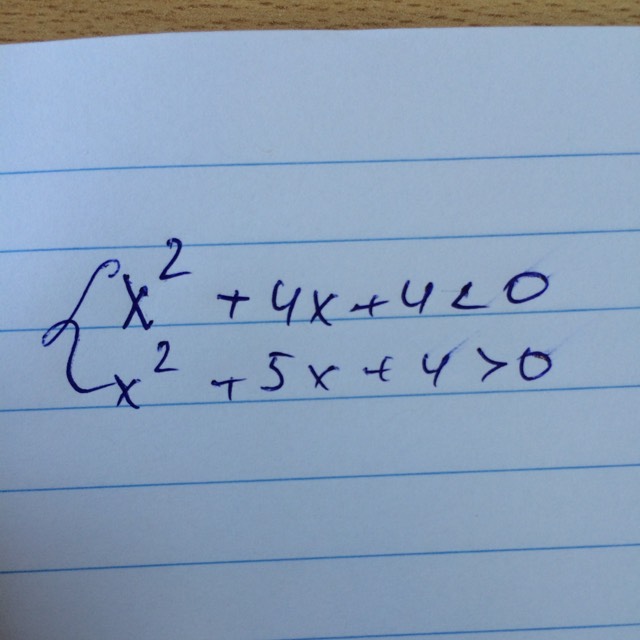 {x² + 4x + 4 < 0
x² + 5x + 4 > 0